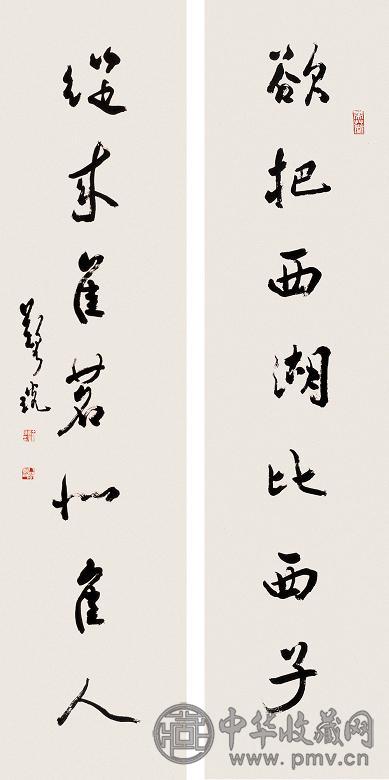 欲把西湖比西子
從來佳茗似佳人
中华收藏网
www.pmv.cn